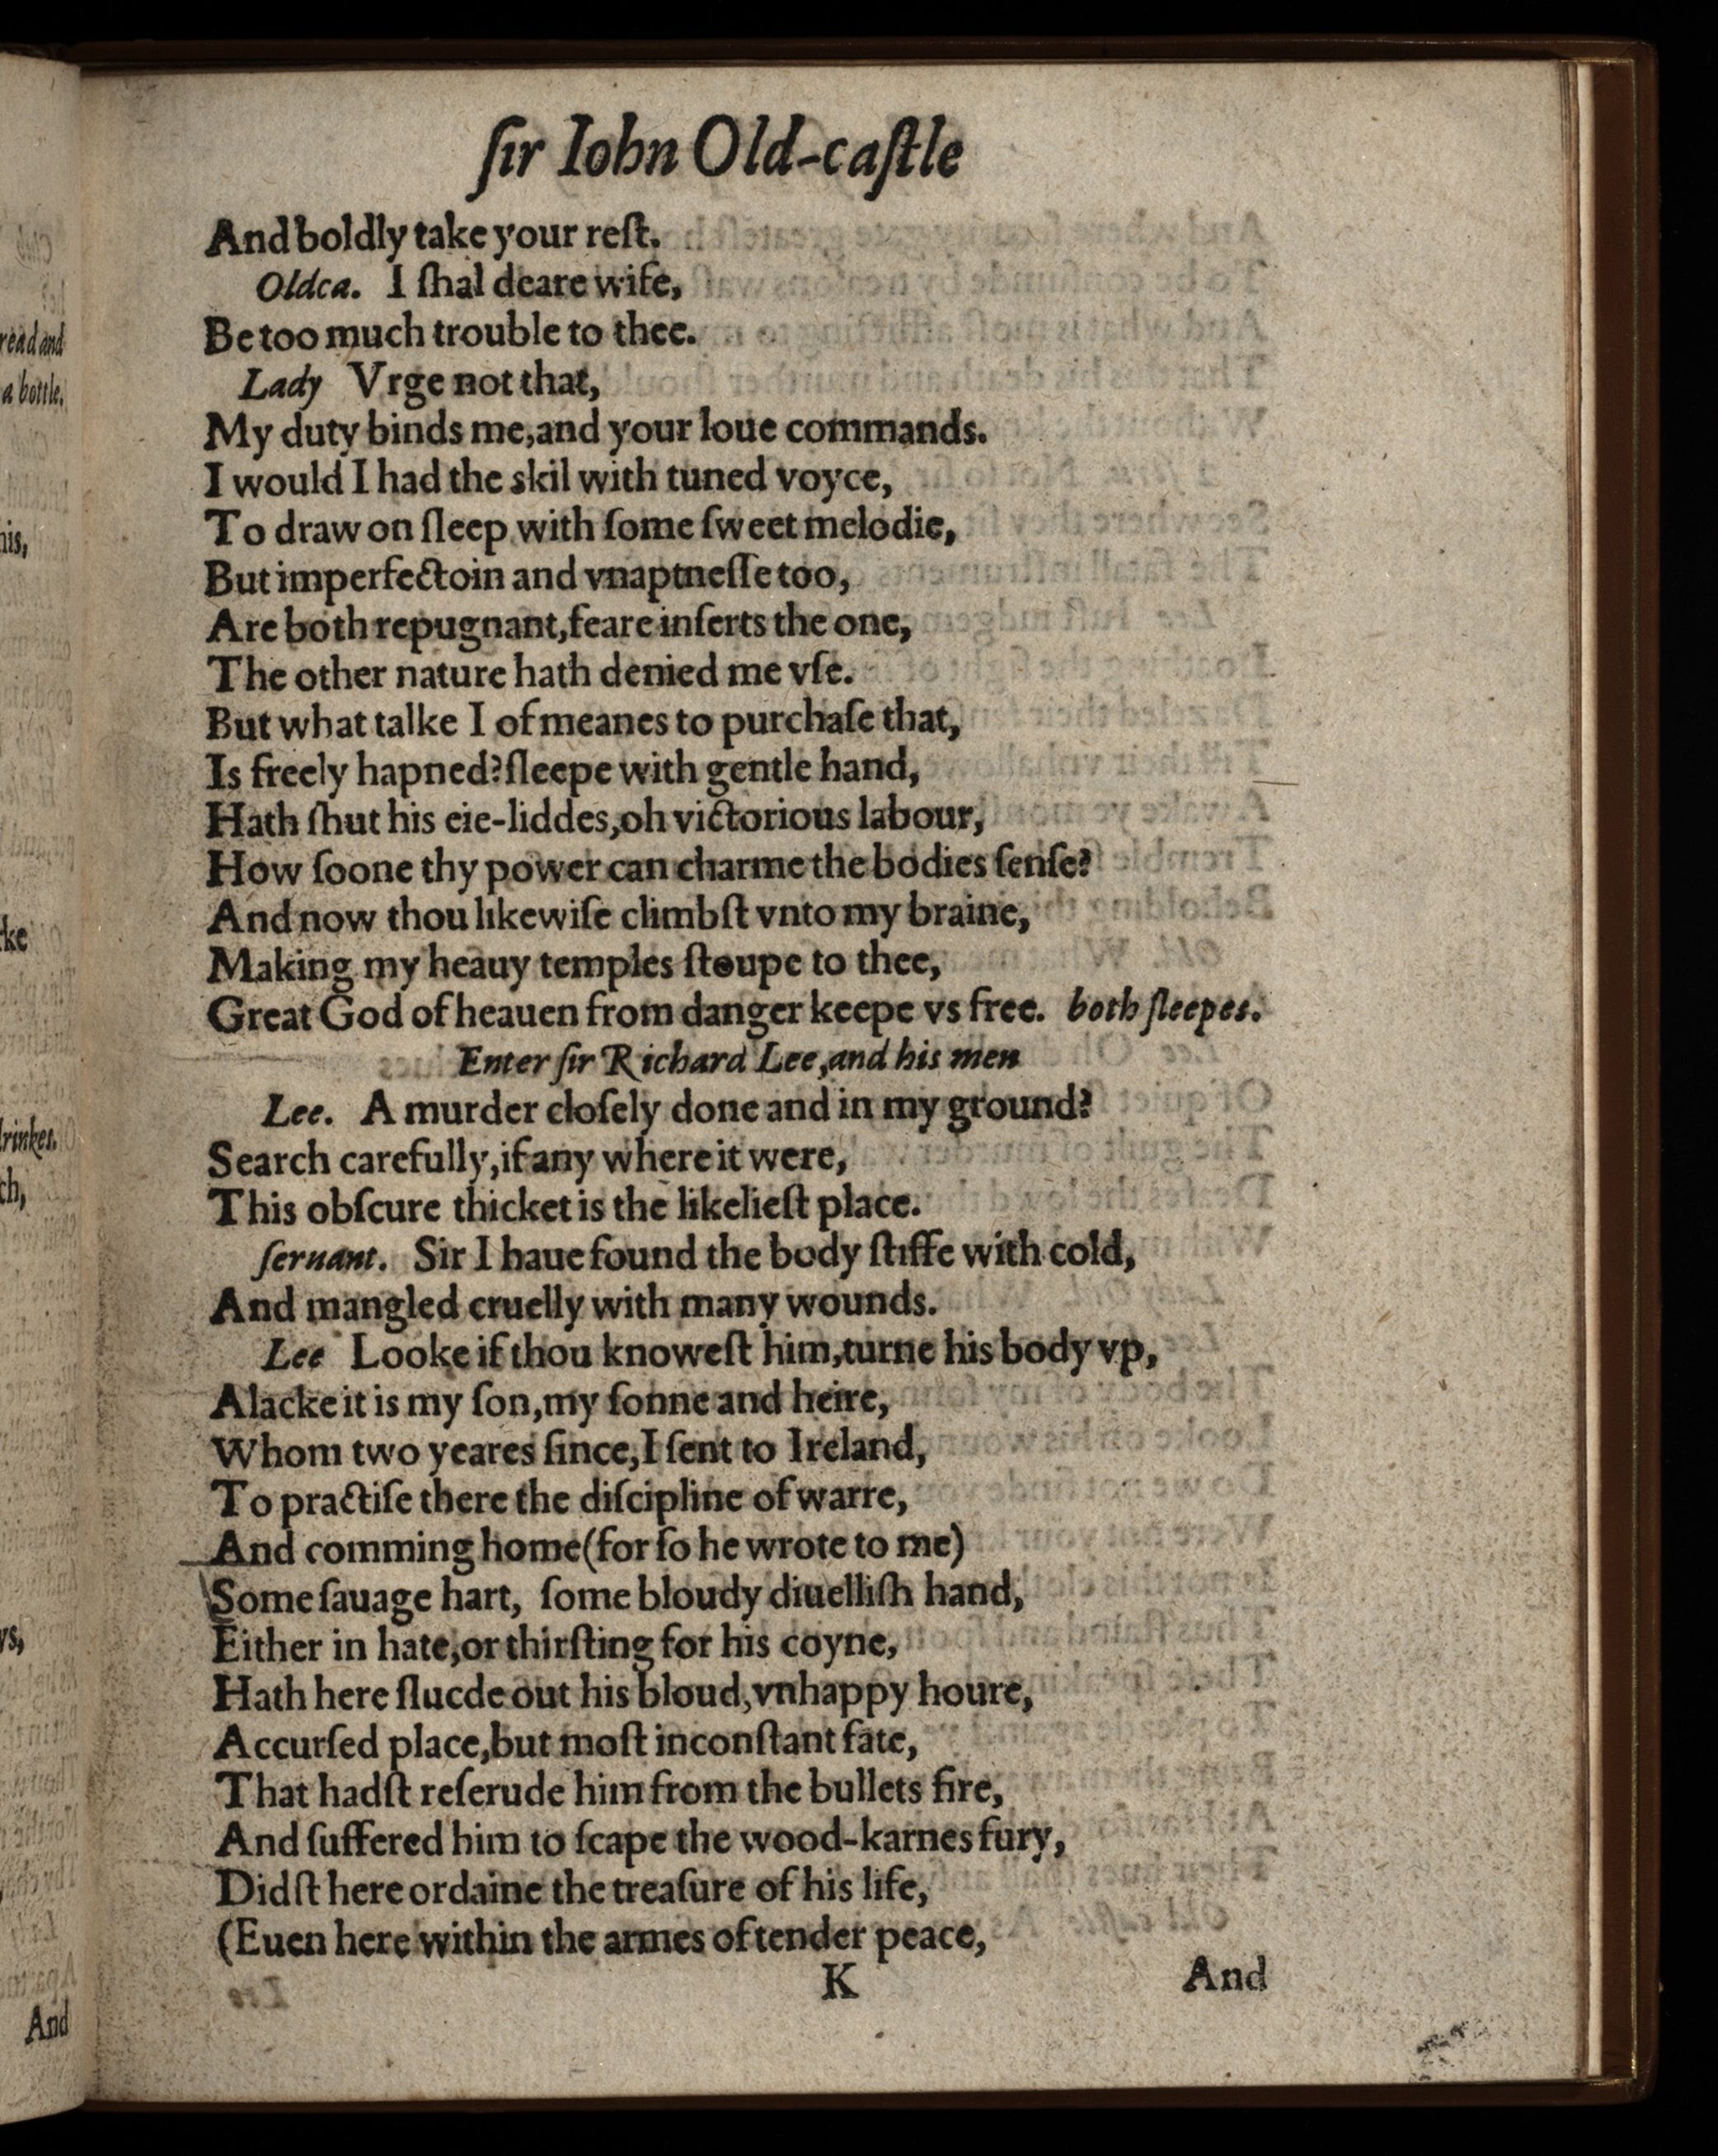 ſir Iohn Old-caſtle
And boldly take your reſt.
Oldca. I ſhal deare wife,
Be too much trouble to thee.
Lady Vrge not that,
My duty binds me,and your loue commands.
I would I had the skil with tuned voyce,
To draw on ſleep with ſome ſweet melodie,
But imperfectoin and vnaptneſſe too,
Are both repugnant,feare inſerts the one,
The other nature hath denied me vſe.
But what talke I of meanes to purchaſe that,
Is freely hapned?ſleepe with gentle hand,
Hath ſhut his eie-liddes,oh victorious labour,
How ſoone thy power can charme the bodies ſenſe?
And now thou likewiſe climbſt vnto my braine,
Making my heauy temples ſtoupe to thee,
Great God of heauen from danger keepe vs free. both ſleepes.
Enter ſir Richard Lee,and his men
Lee. A murder cloſely done and in my ground?
Search carefully,if any where it were,
This obſcure thicket is the likelieſt place.
ſeruant. Sir I haue found the body ſtiffe with cold,
And mangled cruelly with many wounds.
Lee Looke if thou knoweſt him,turne his body vp,
Alacke it is my ſon,my ſonne and heire,
Whom two yeares ſince,I ſent to Ireland,
To practiſe there the diſcipline of warre,
And comming home(for ſo he wrote to me)
Some ſauage hart, ſome bloudy diuelliſh hand,
Either in hate,or thirſting for his coyne,
Hath here ſlucde out his bloud,vnhappy houre,
Accurſed place,but moſt inconſtant fate,
That hadſt reſerude him from the bullets fire,
And ſuffered him to ſcape the wood-karnes fury,
Didſt here ordaine the treaſure of his life,
(Euen here within the armes of tender peace,
K And
read and
a bottle.
his,
drinkes.
And